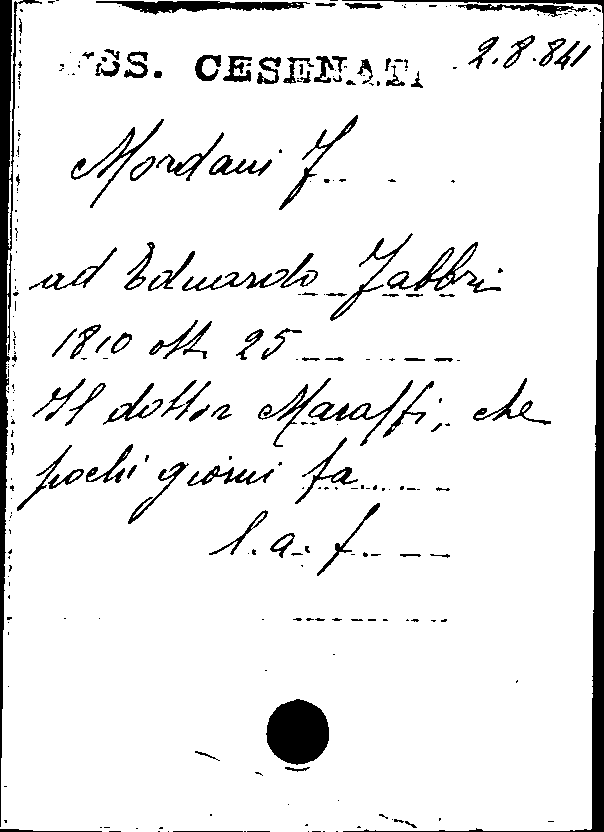 MSS. CESENATI 2.8.841
Mordani F.
ad Eduardo Fabbri
1810 ott. 25
Il dottor Maraffi, che
pochi giorni fa
l. a. f.